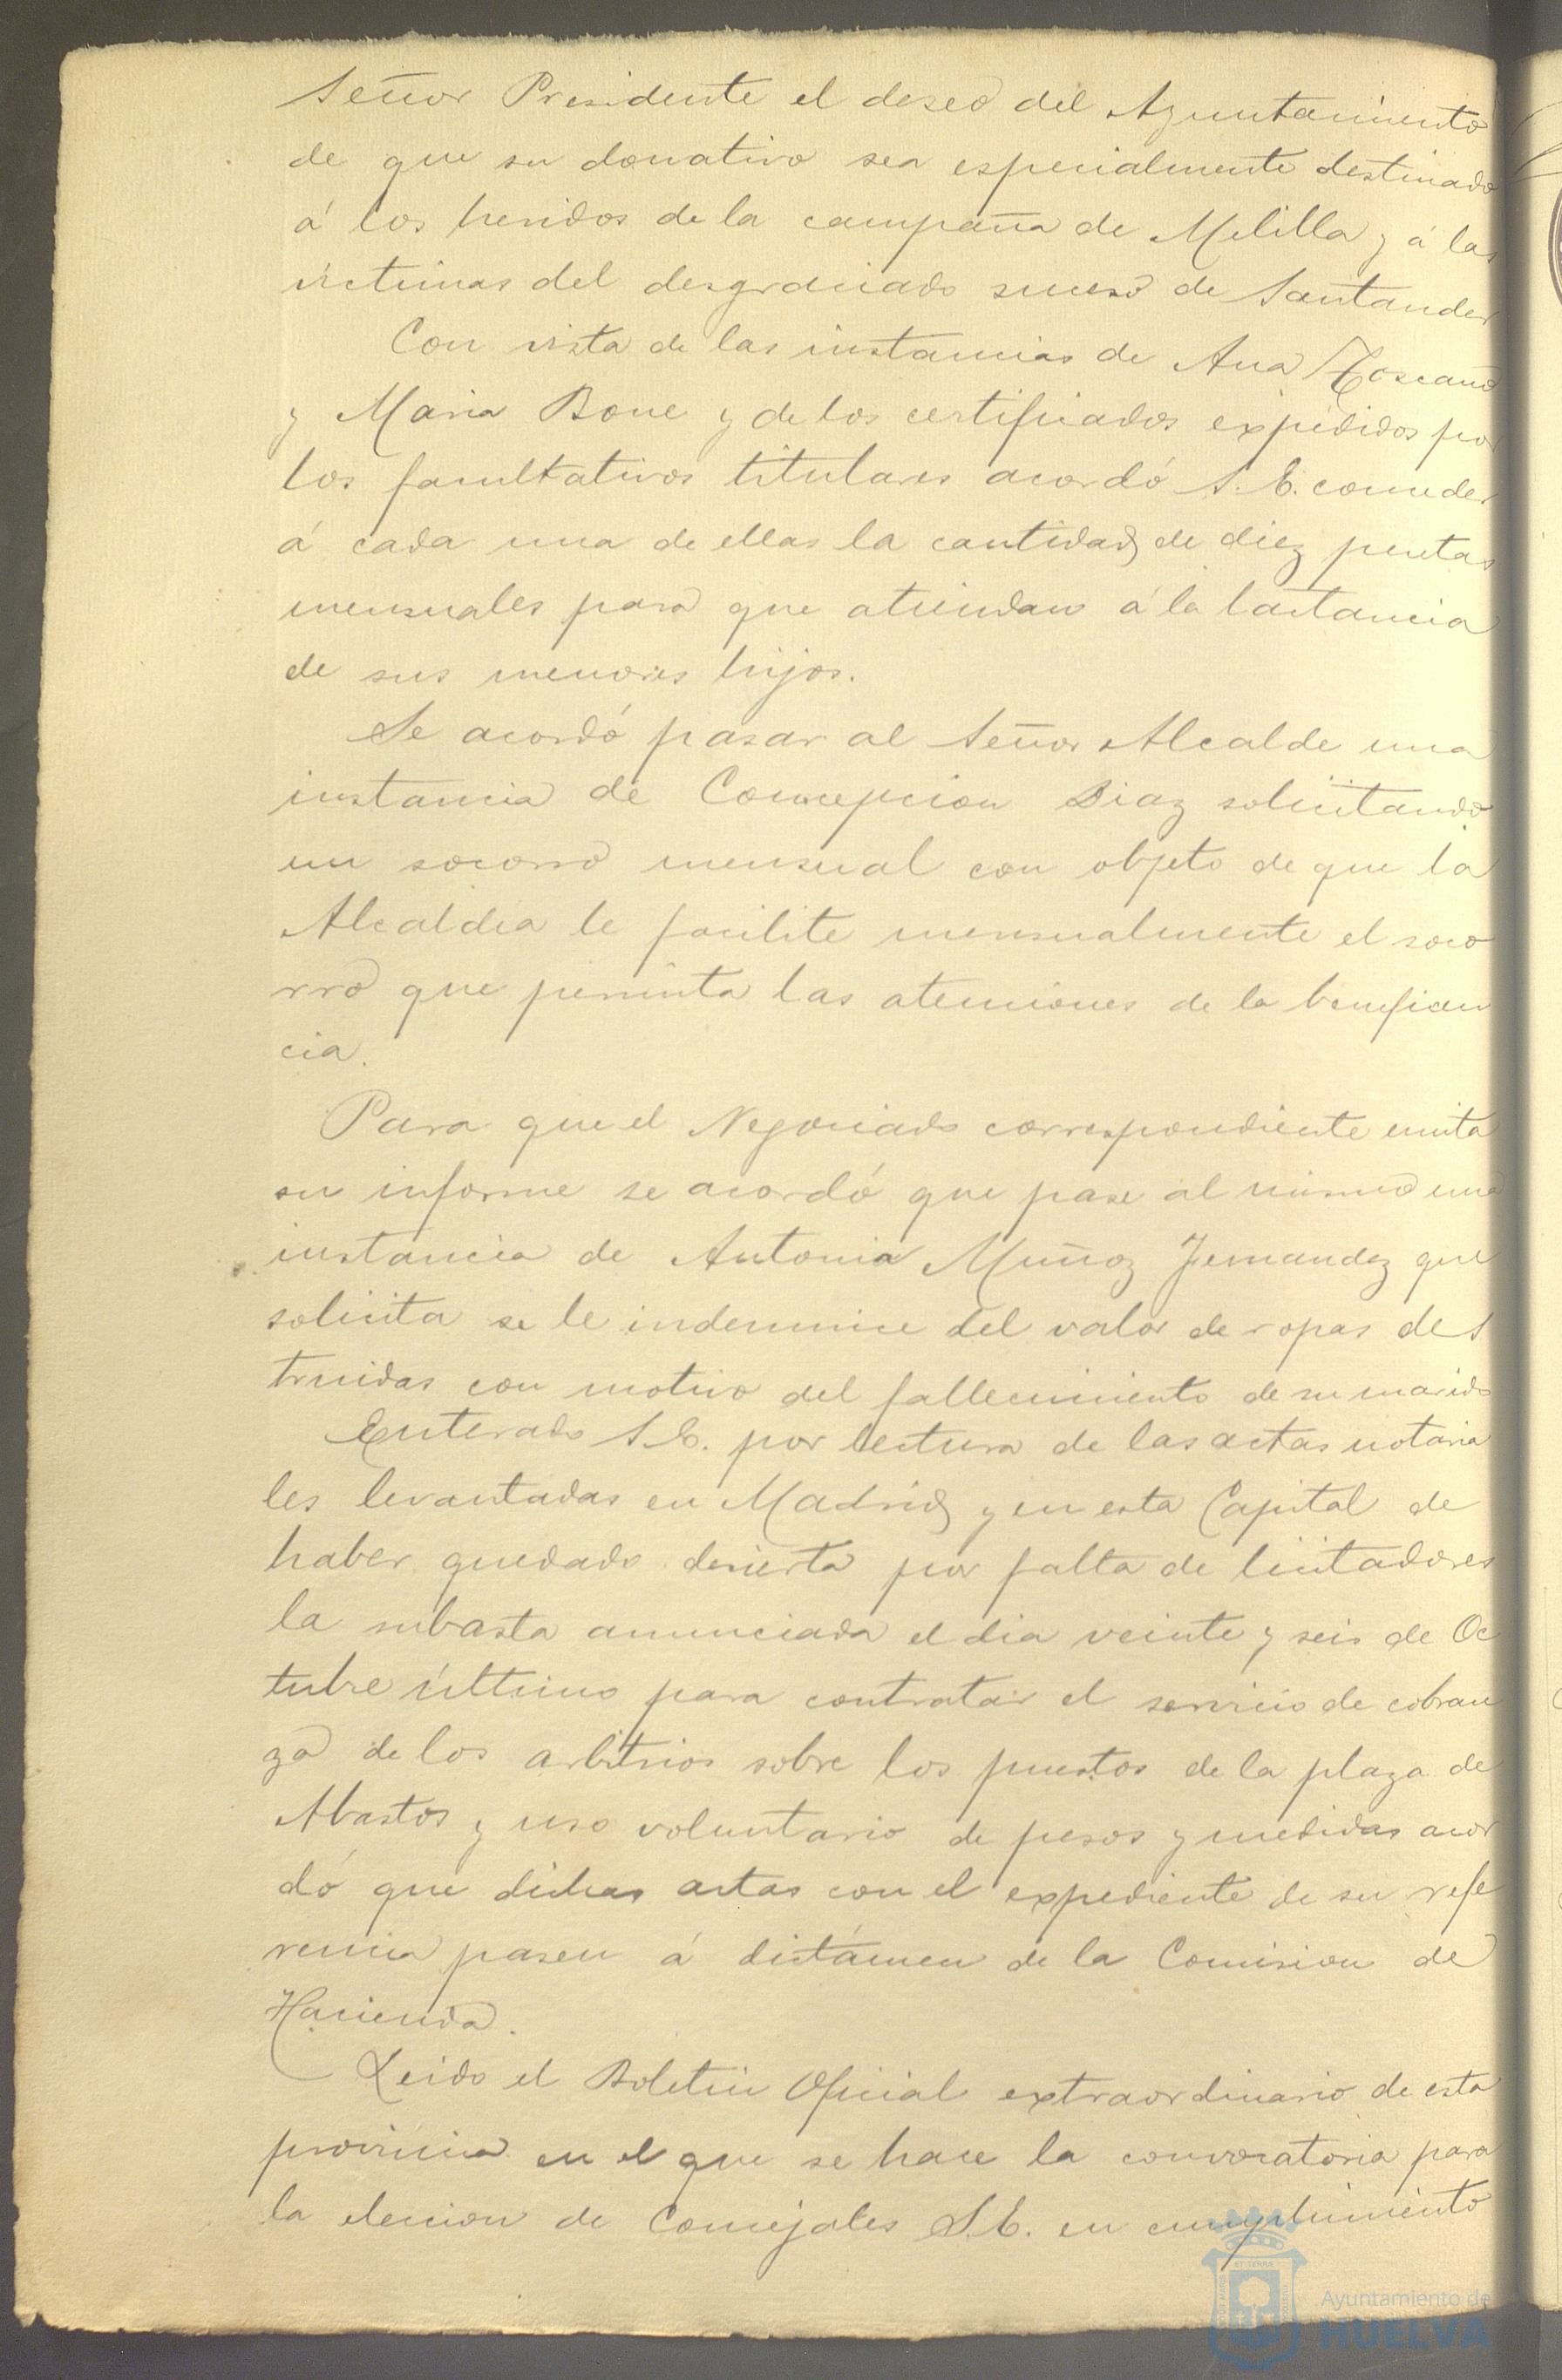 Señor Presidente el deseo del Ayuntamiento
de que su donativo sea especialmente destinado
á los heridos de la campaña de Melilla y á las
victimas del desgraciado suceso de Santander
Con vista de las instancias de Ana Toscano
y Maria Bone y de los certificados expedidos por
los facultativos titulares acordó S. E. conceder
á cada una de ellas la cantidad de diez pesetas
mensuales para que atiendan á la lactancia
de sus menores hijos.
Se acordó pasar al Señor Alcalde una
instancia de Concepcion Diaz solicitando
un socorro mensual con objeto de que la
Alcaldia le facilite mensualmente el soco
rro que permita las atenciones de la beneficen
cia.
Para que el Negociado correspondiente emita
su informe se acordó que pase al mismo una
instancia de Antonia Muñoz Fernandez que
solicita se le indemnice del valor de ropas des
truidas con motivo del fallecimiento de su marido
Enterado S. E. por lectura de las actas notaria
les levantadas en Madrid y en esta Capital de
haber quedado desierta por falta de licitadores
la subasta anunciada el dia veinte y seis de Oc
tubre último para contratar el servicio de cobran
za de los arbitrios sobre los puestos de la plaza de
Abastos y uso voluntario de pesos y medidas acor
dó que dichas actas con el expediente de su refe
rencia pasen á dictámen de la Comision de
Hacienda.
Leido el Boletin Oficial extraordinario de esta
provincia en el que se hace la convocatoria para
la eleccion de Concejales S. E. en cumplimiento
Ayuntamiento de
HUELVA